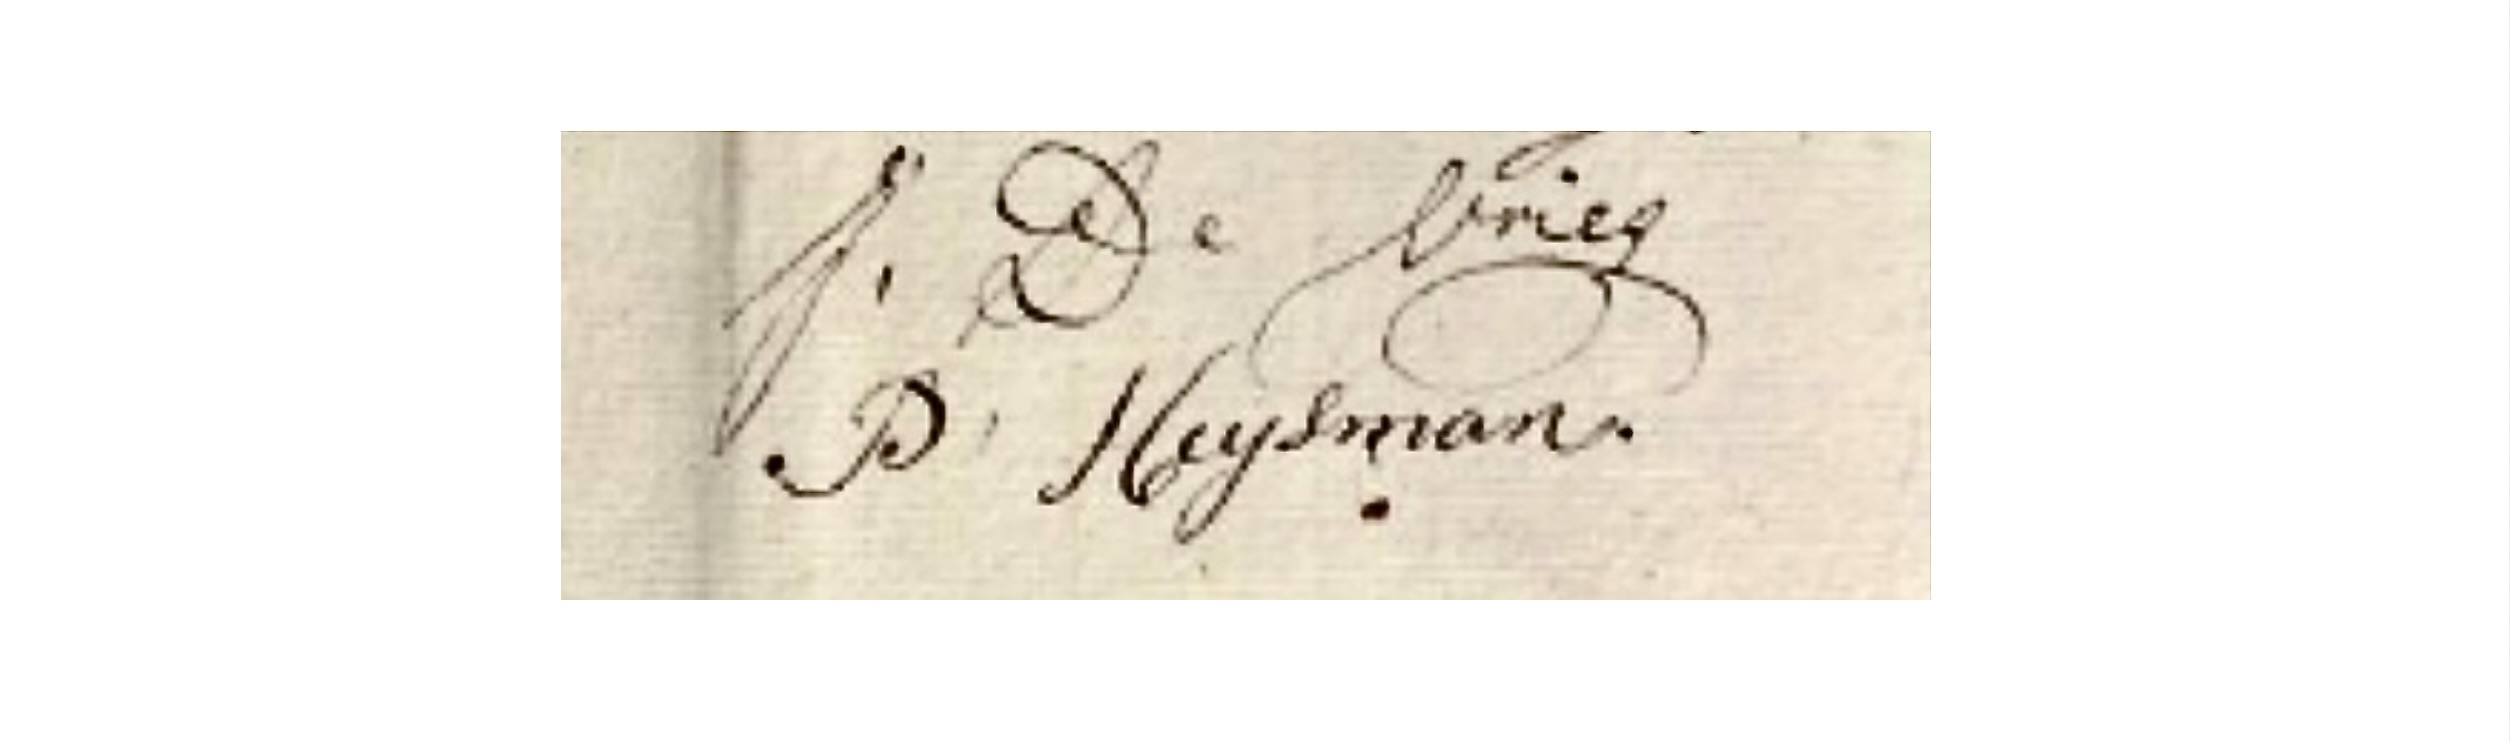 J. De Vries
P. Heysman.